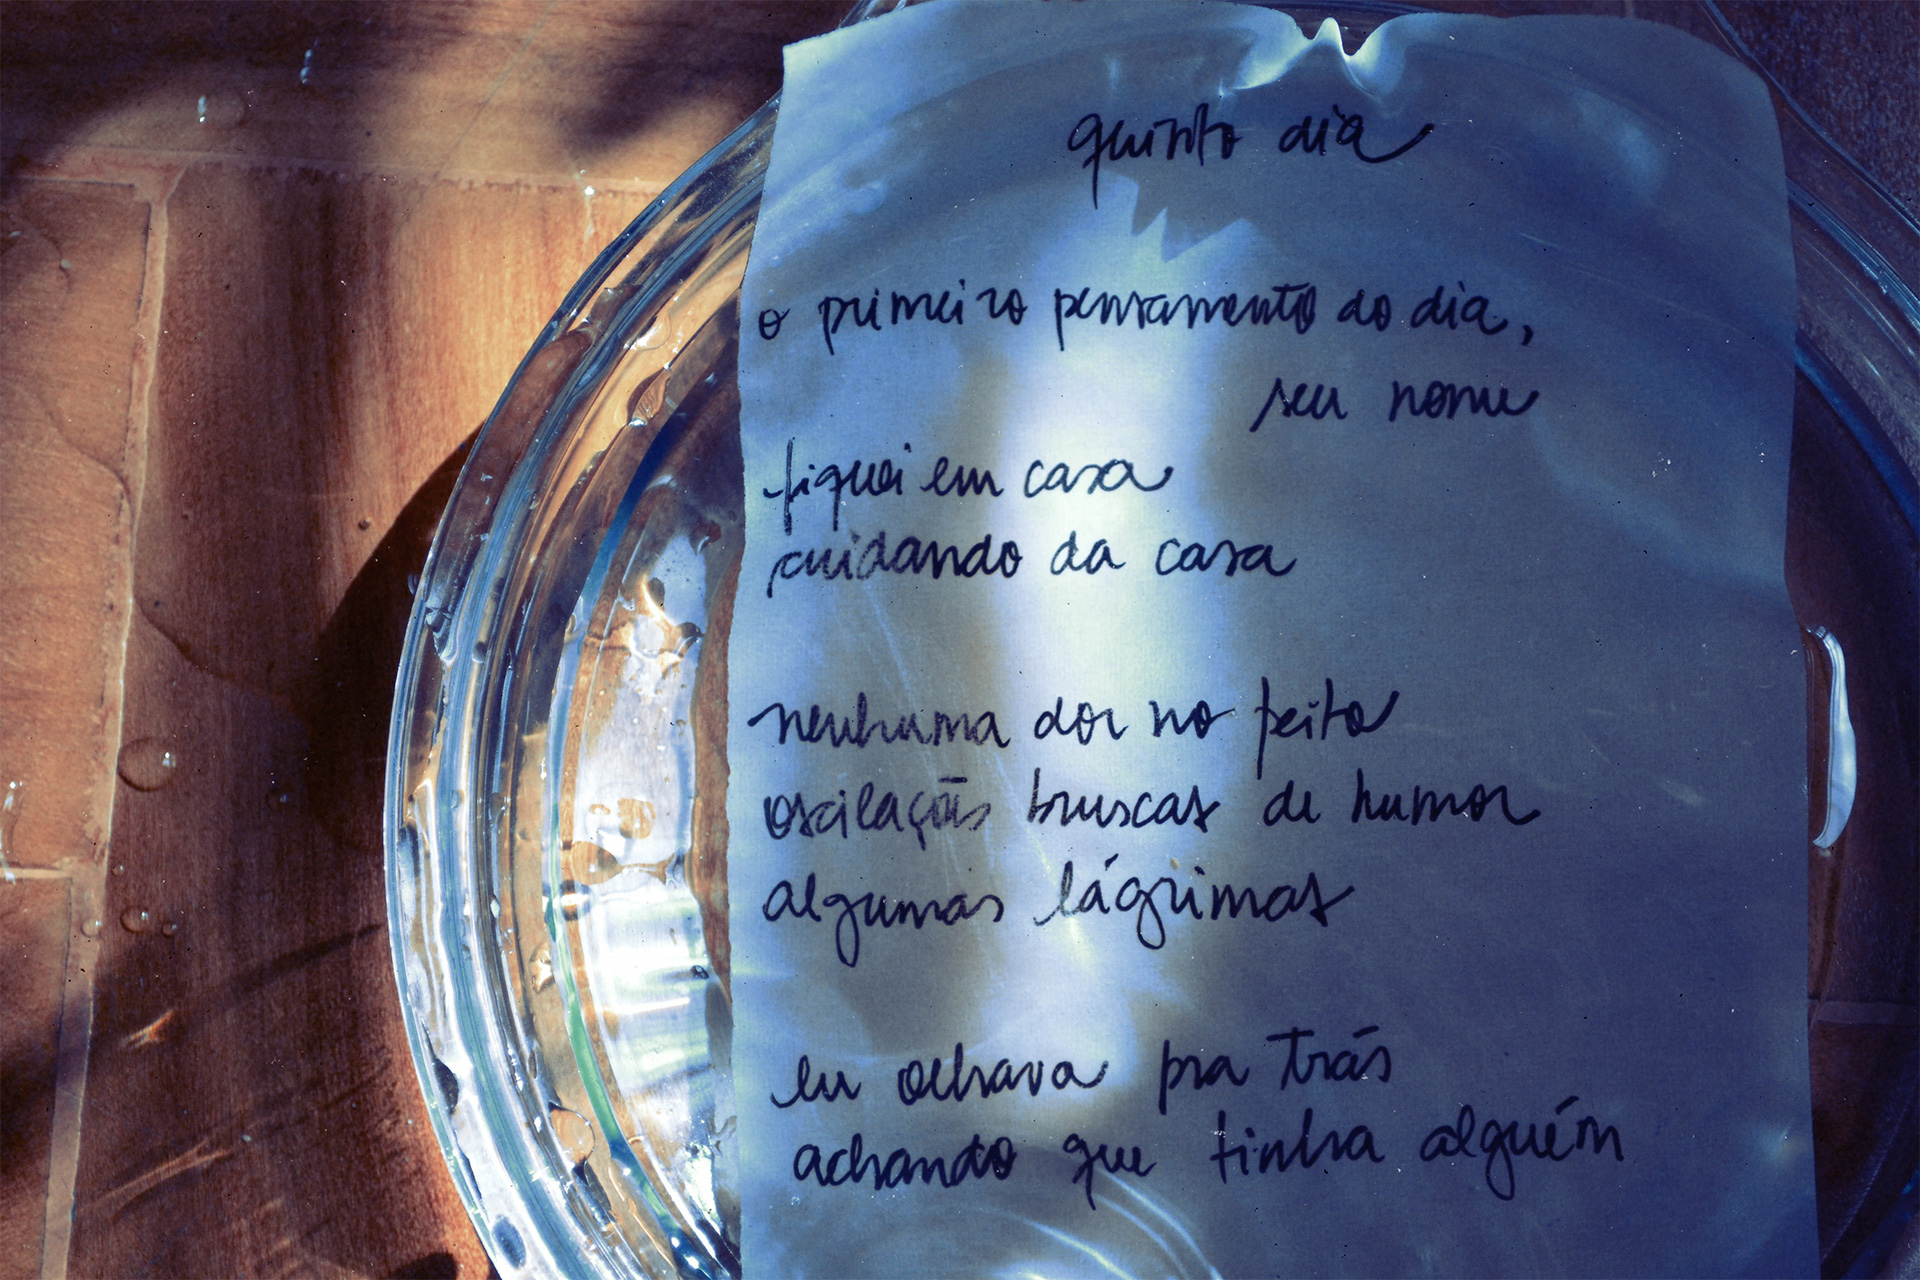 quinto dia
o primeiro pensamento do dia,
seu nome
fiquei em casa
cuidando da casa
nenhuma dor no peito
oscilações bruscas de humor
algumas lágrimas
eu olhava pra trás
achando que tinha alguém